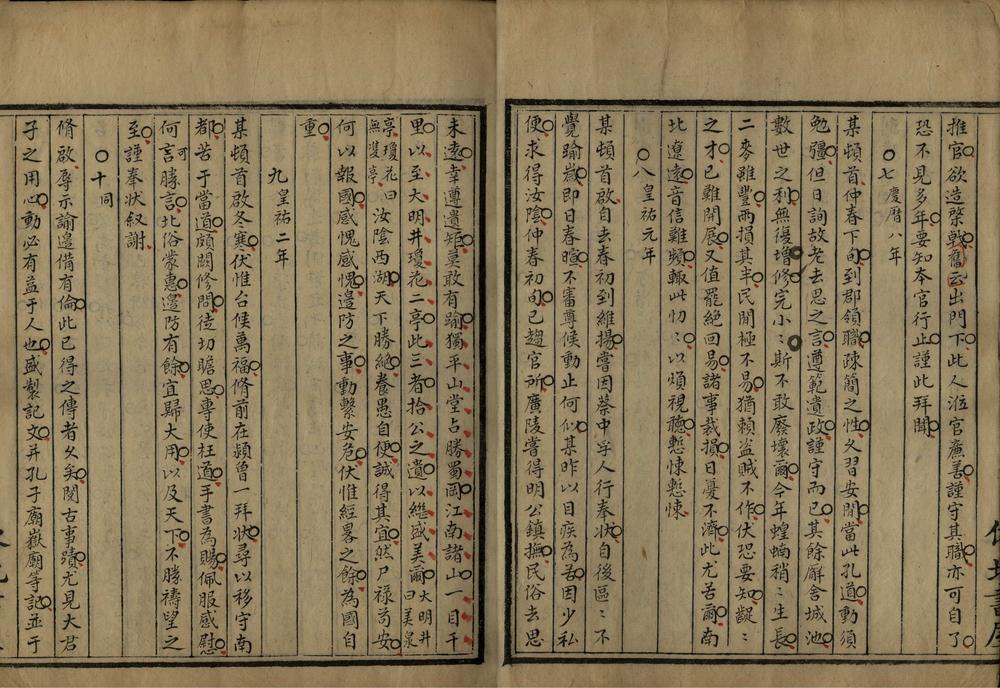 推官欲造棨戟舊云出門下此人涖官廉善謹守其職亦可自了
恐不見多年要知本官行止謹此拜聞
七慶曆八年
某頓首仲春下旬到郡領職疎簡之性久習安閒當此孔道動須
勉彊但日詢故老去思之言遵範遺政謹守而已其餘廨舍城池
數世之利無復增修完小〻斯不敢廢壞爾今年蝗蝻稍〻生長
二麥雖豐雨損其半民閒極不易猶賴盜賊不作伏恐要知齪〻
之才已難開展又值罷絕回易諸事裁損日憂不濟此尤苦爾南
北遼遠音信難頻輒此忉〻以煩視聽慙悚慙悚
八皇祐元年
某頓首啟自去春初到維揚嘗因蔡中孚人行奉狀自後區〻不
覺踰歲即日春暄不審尊候動止何似某昨以目疾為苦因少私
便求得汝陰仲春初旬已趨官所廣陵嘗得明公鎮撫民俗去思
未遠幸遵遺矩莫敢有踰獨平山堂占勝蜀岡江南諸山一目千
里以至大明井瓊花二亭此三者拾公之遺以繼盛美爾大明井曰美泉
亭瓊花曰無雙亭汝陰西湖天下勝絕養愚自便誠得其宜然尸祿苟安
何以報國感愧感愧邊防之事動繫安危伏惟經畧之餘為國自
重
九皇祐二年
某頓首啟冬寒伏惟台候萬福脩前在潁曾一拜狀尋以移守南
都苦于當道頗闕修問徒切瞻思專使枉道手書為賜佩服感慰
何可言勝言北俗蒙惠邊防有餘宜歸大用以及天下不勝禱望之
至謹奉狀叙謝
十同
脩啟辱示諭邊備有倫此已得之傳者久矣閱古事蹟尤見大君
子之用心動必有益于人也盛製記文并孔子廟嶽廟等記並于